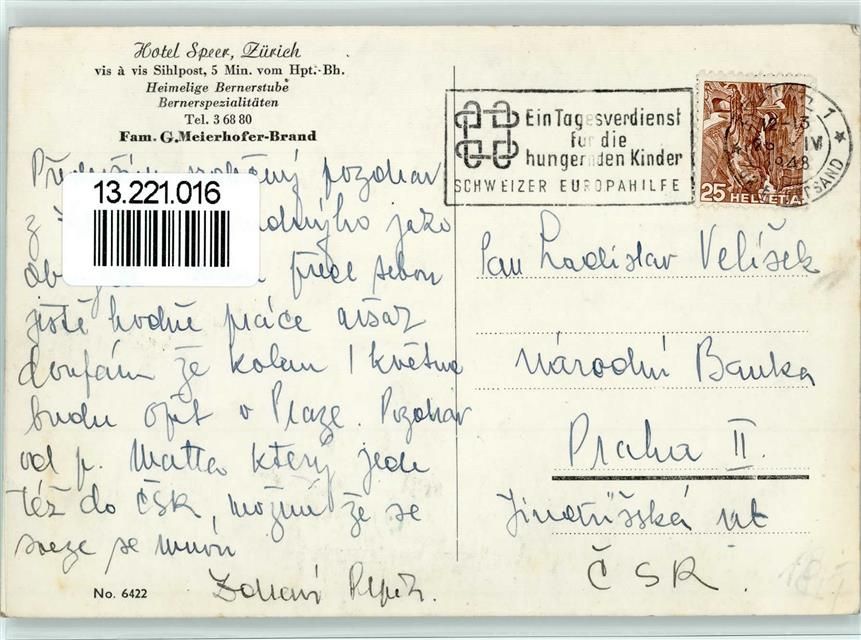 Hotel Speer, Zürich
vis à vis Sihlpost, 5 Min. vom Hpt.-Bh.
Heimelige Bernerstube
Bernerspezialitäten
Tel. 3 68 80
Fam. G. Meierhofer-Brand
pozdrav
13.221.016
z
před sebou
jistě hodně práce avšak
doufám že kolem 1 května
budu opět v Praze. Pozdrav
od p. který jede
též do ČSR, možná že se
sveze se mnou
No. 6422
Ein Tagesverdienst
für die
hungernden Kinder
SCHWEIZER EUROPAHILFE
1948
25 HELVETIA
Pan Ladislav Velíšek
Národní Banka
Praha II.
Jindřišská ul
ČSR.